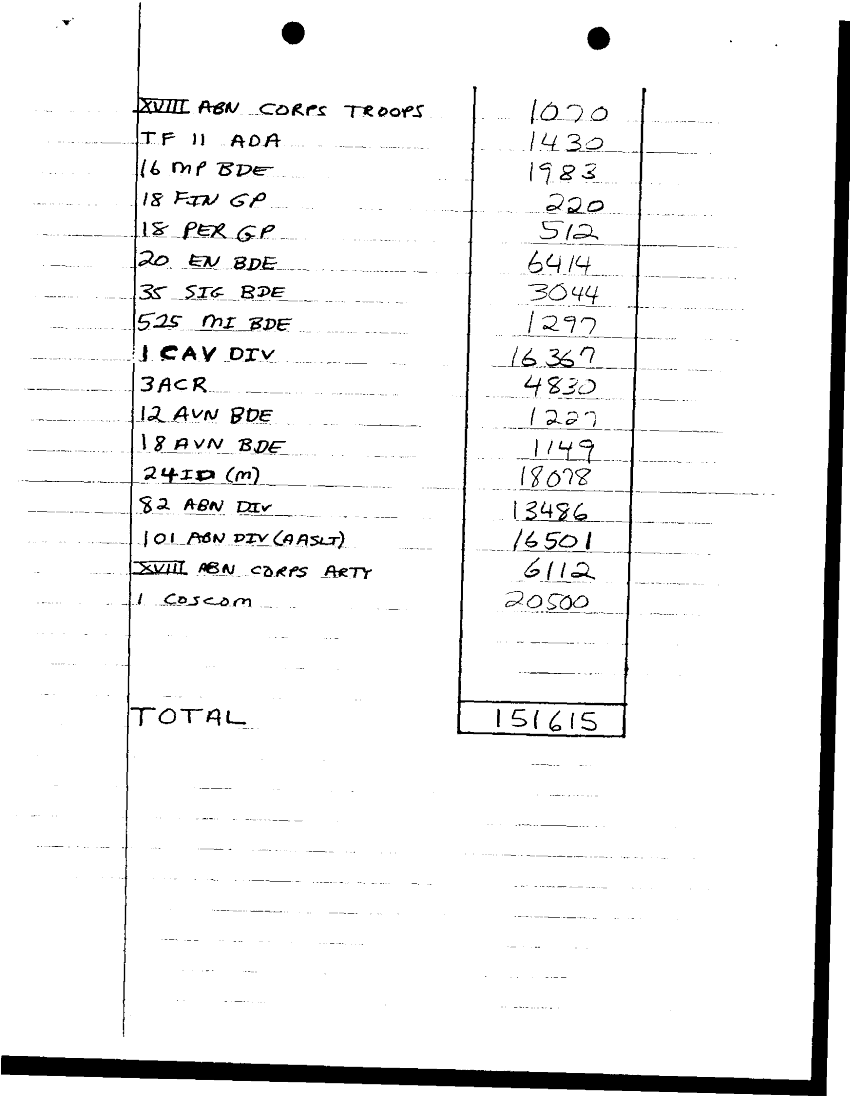 XVIII ABN CORPS TROOPS 1070
TF 11 ADA 1430
16 MP BDE 1983
18 FIN GP 220
18 PER GP 512
20 EN BDE 6414
35 SIG BDE 3044
525 MI BDE 1297
1 CAV DIV 16367
3 ACR 4830
12 AVN BDE 1227
18 AVN BDE 1149
24 ID (M) 18078
82 ABN DIV 13486
101 ABN DIV (AASLT) 16501
XVIII ABN CORPS ARTY 6112
1 COSCOM 20500
TOTAL 151615